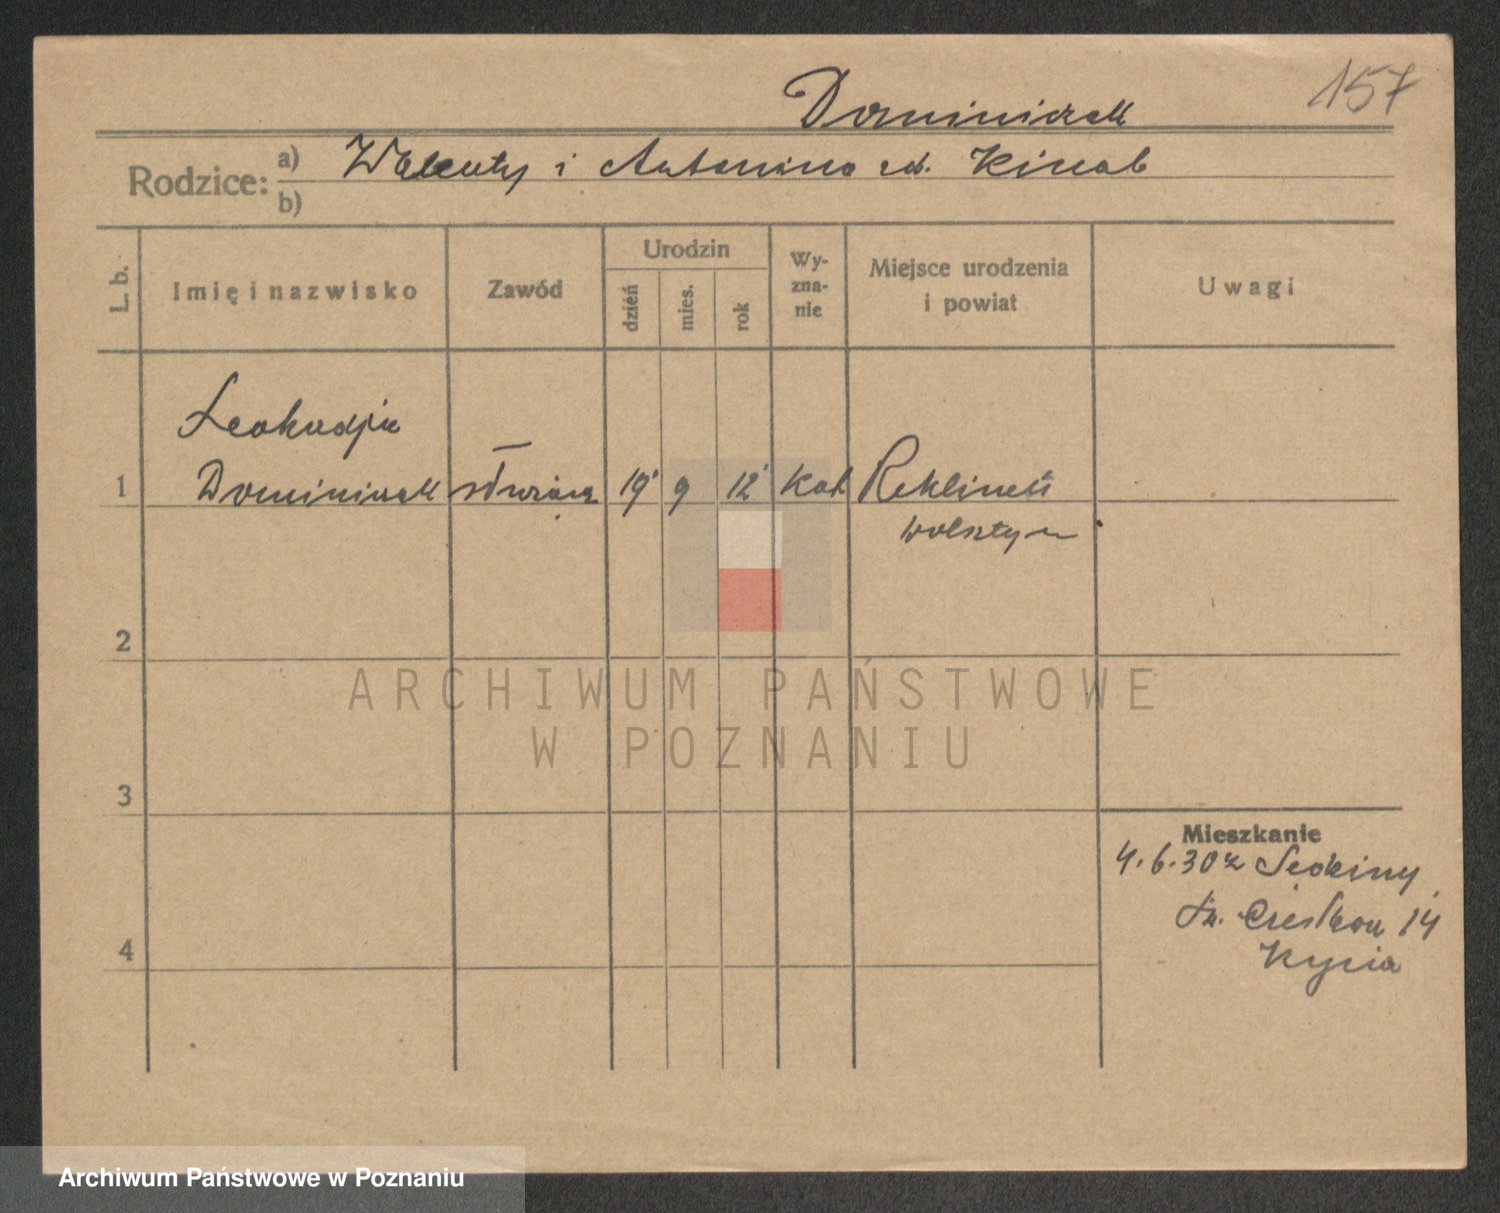 157
Dominiczak
Rodzice: a) Walenty i Antonina zd.
b)
L. b.
Imię i nazwisko
Zawód
Urodzin
dzień
mies.
rok
Wy-
zna-
nie
Miejsce urodzenia
i powiat
Uwagi
Leokadja
1 Dominiczak służąca 19 9 12 kat Reklinek
Wolsztyn
2
3
4
Mieszkanie
4.6.30 z
14
Kycia
ARCHIWUM PAŃSTWOWE
W POZNANIU
Archiwum Państwowe w Poznaniu